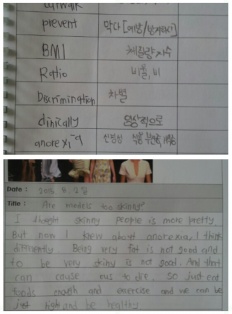 prevent 막다 [예방/방지하다]
BMI 체질량지수
Ratio 비율, 비
Discrimination 차별
clinically 임상적으로
anorexia 신경성
Date:
Title: Are models too skinny
I thought skinny people is more pretty
But now I knew about anorexia, I think
differently Being very fat is not good and
to be very skinny is not good. And that
can cause us to die. So just eat
foods and exercise and we can be
and be healthy